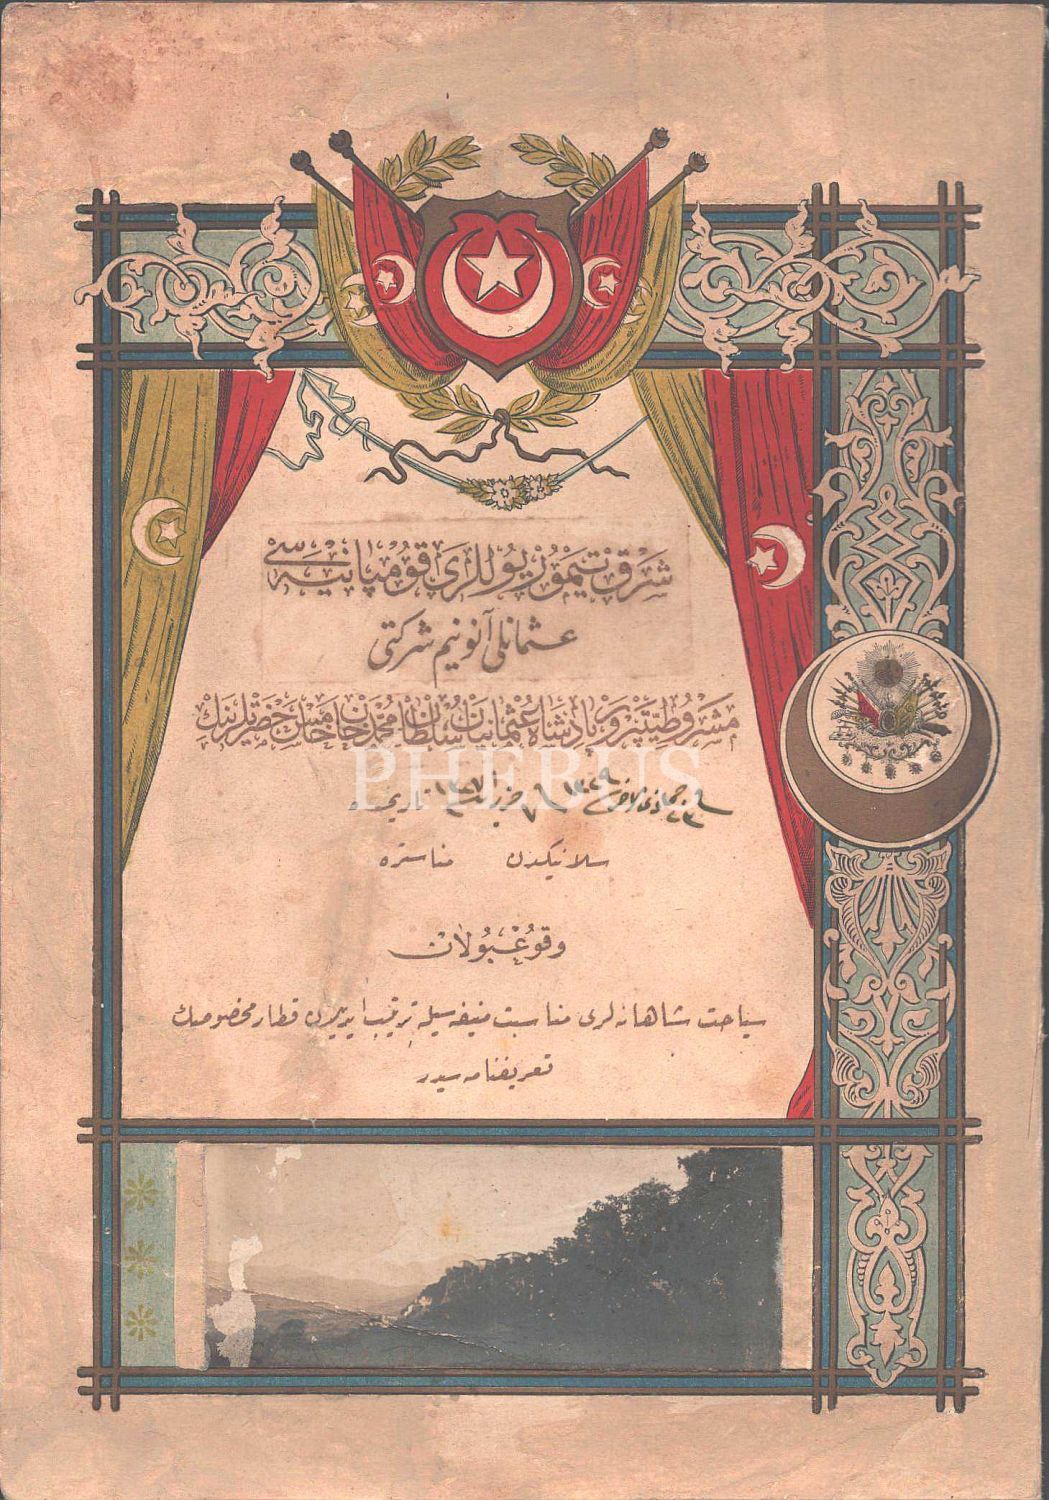 شرق تیمور یوللری قومپانیه سی
عثمانلی آنونیم شرکتی
مشروطیتپرور پادشاه عثمانیان سلطان محمد خان خامس حضرتلرینك
٢٣ جمادی الاخر ١٣٢٩ تاریخنده
PHEBUS
سلانیکدن مناستره
وقوعبولان
سیاحت شاهانه لری مناسبت منیفه سیله ترتیب ایدیلن قطار مخصوصك
تعریفنامه سیدر